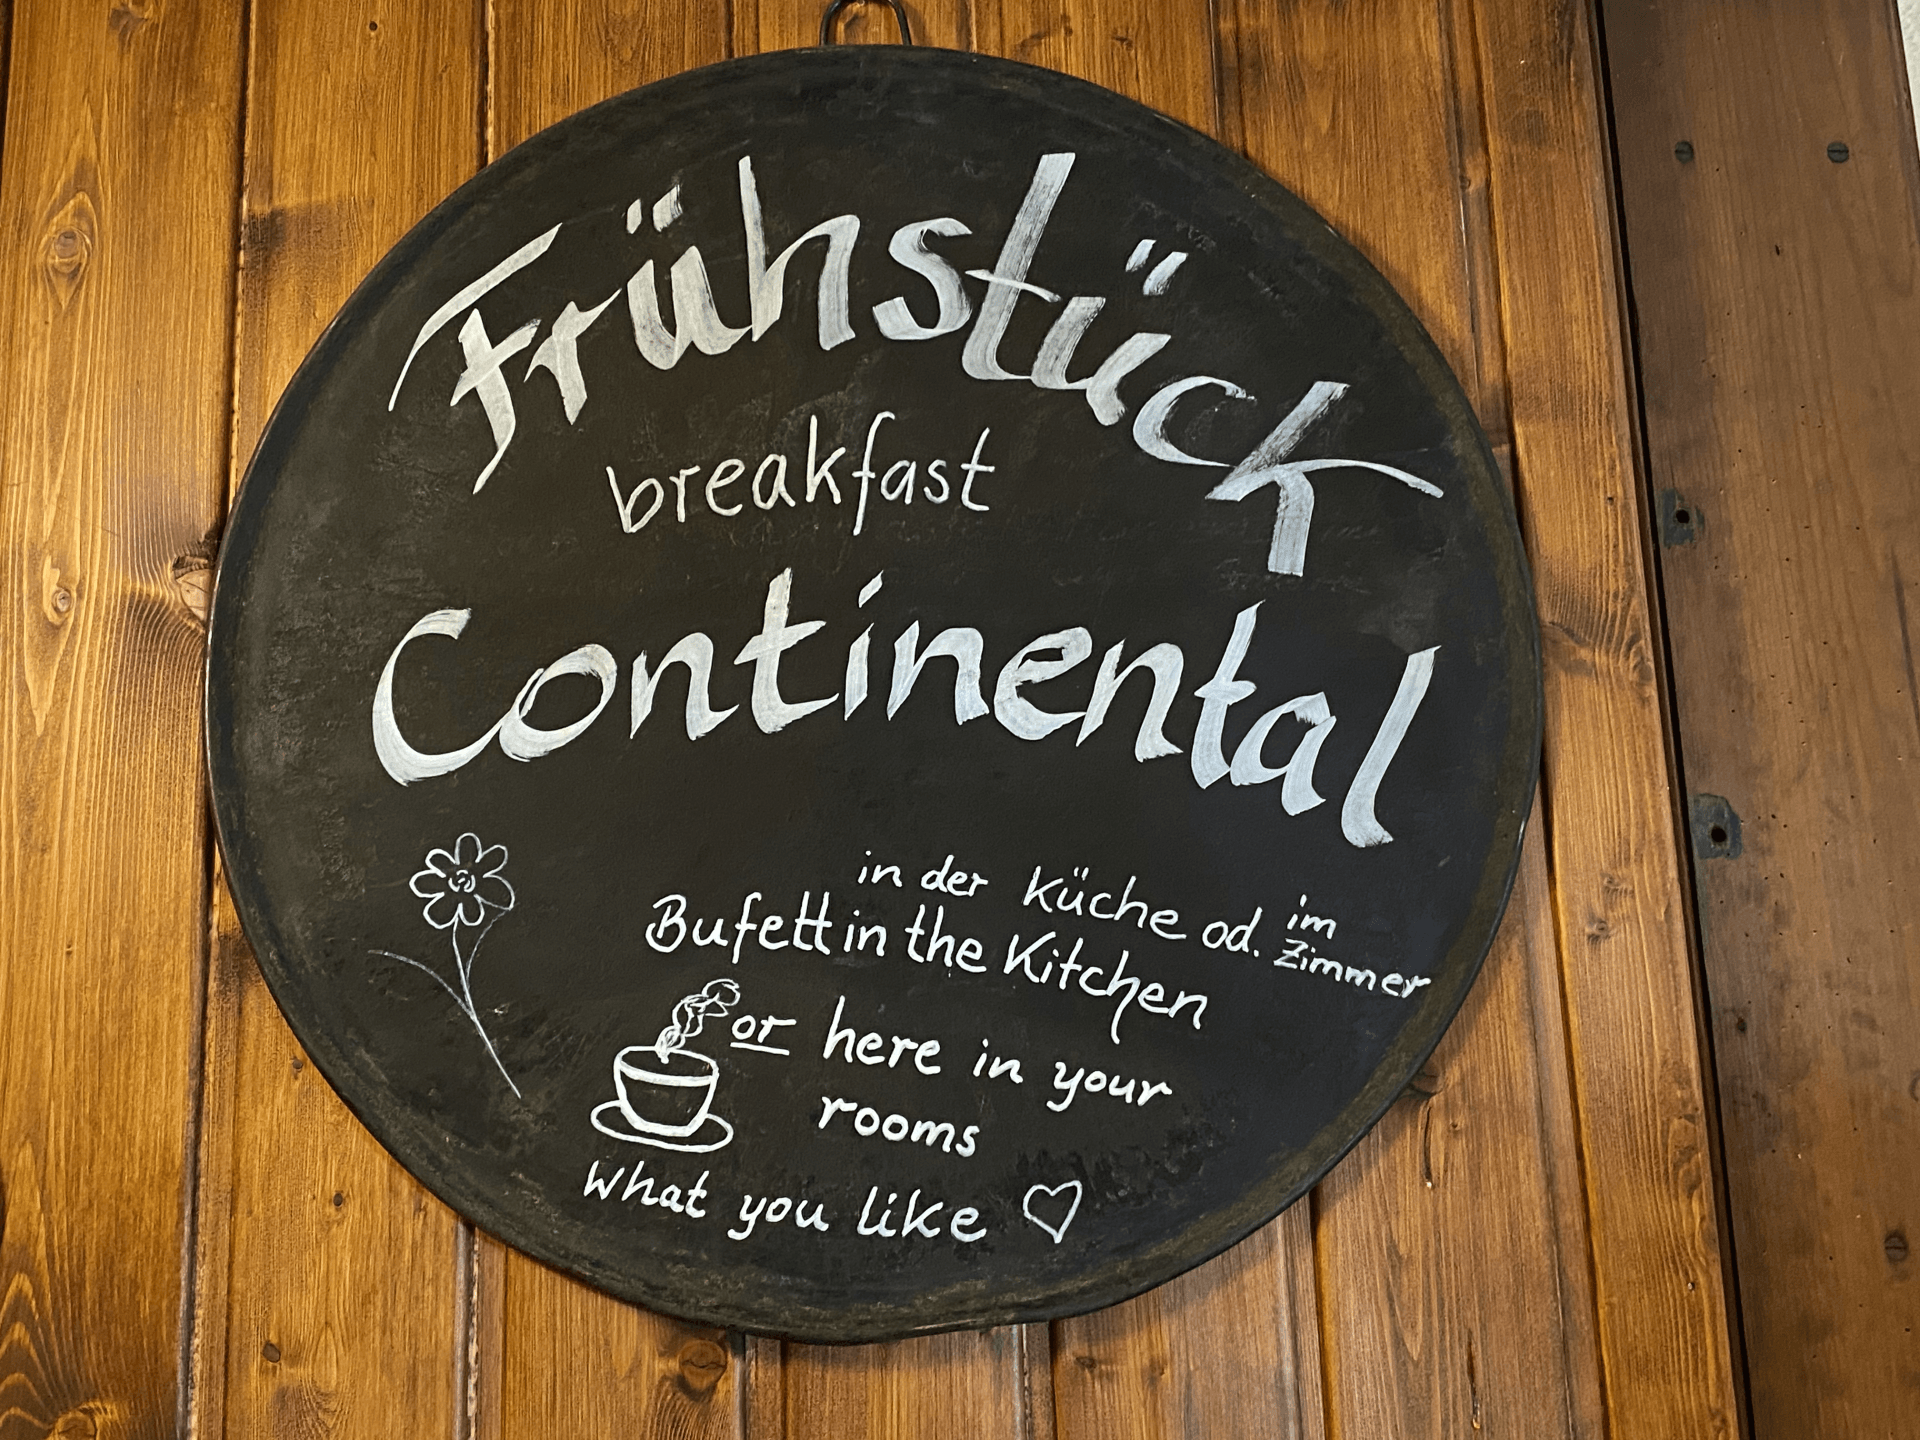 Frühstück
breakfast
Continental
in der Küche od. im Zimmer
Bufett in the Kitchen
or here in your
rooms
What you like